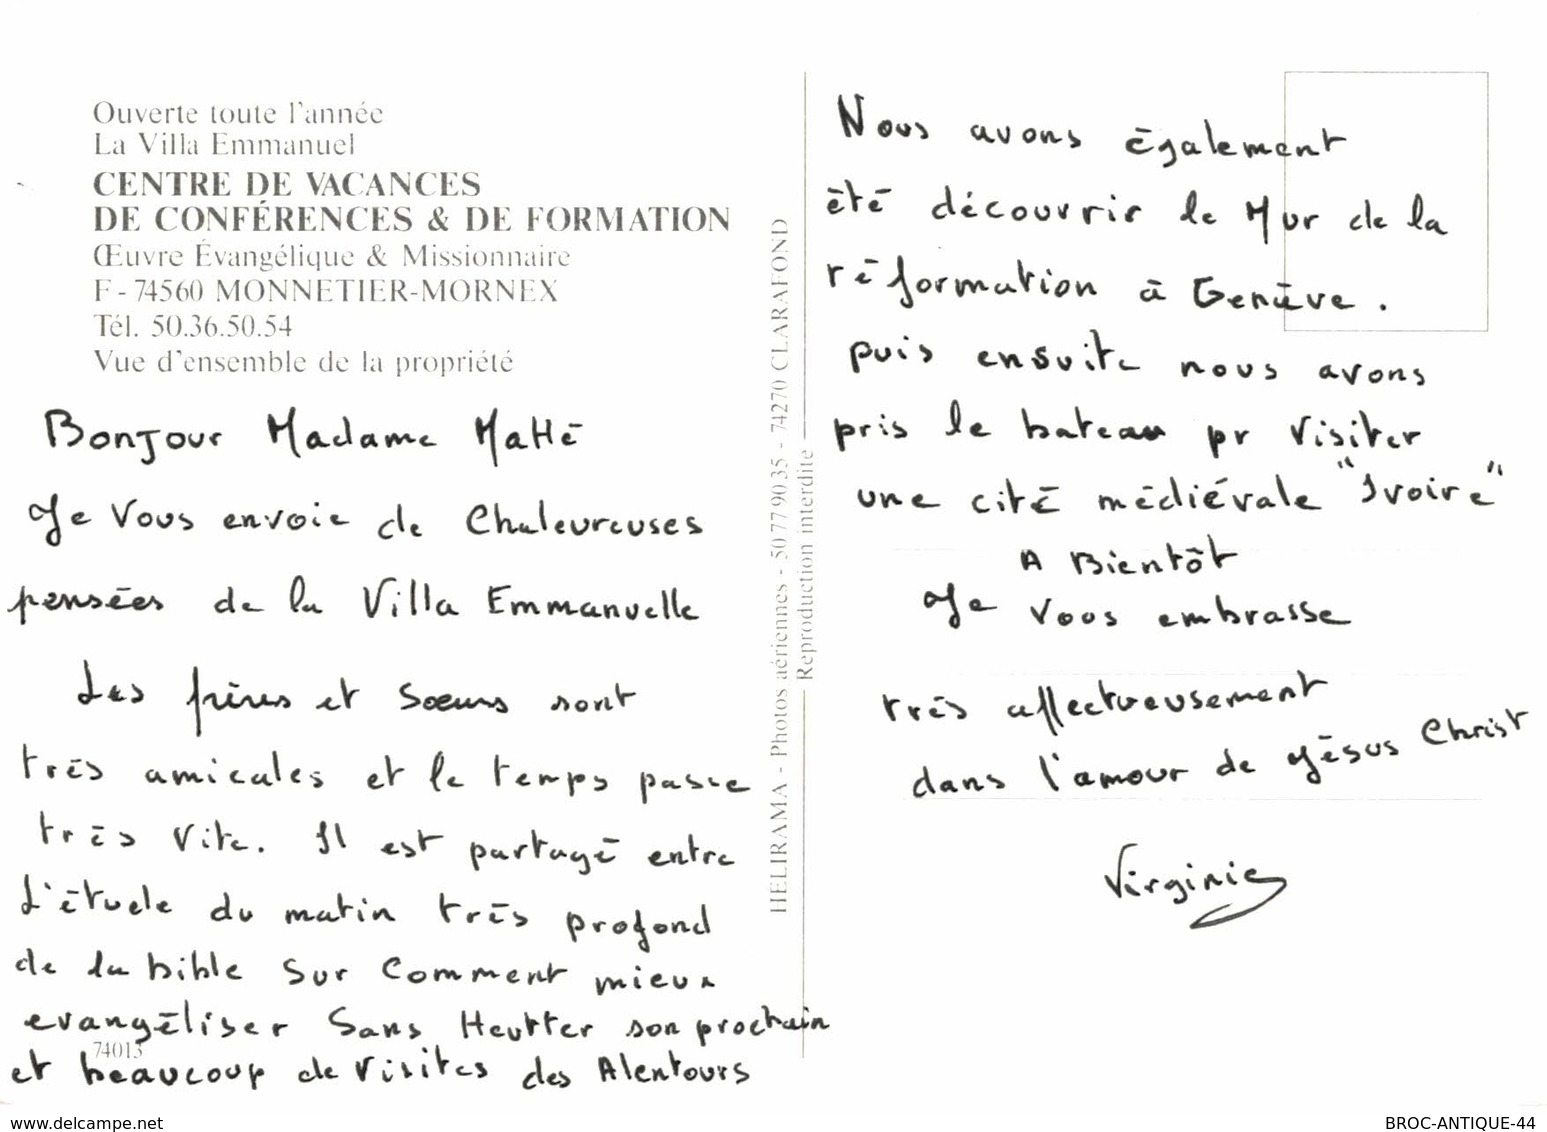 Ouverte toute l'année
La Villa Emmanuel
CENTRE DE VACANCES
DE CONFÉRENCES & DE FORMATION
Œuvre Évangélique & Missionnaire
F - 74560 MONNETIER-MORNEX
Tél. 50.36.50.54
Vue d'ensemble de la propriété
Bonjour Madame Matté
Je vous envoie de Chaleureuses
pensées de la Villa Emmanuelle
Les frères et sœurs sont
très amicales et le temps passe
très vite. Il est partagé entre
L'étude du matin très profond
de la bible sur Comment mieux
evangéliser sans Heurter son prochain
74013
et beaucoup de visites des Alentours
HELIRAMA - Photos aériennes - 50 77 90 35 - 74270 CLARAFOND
Reproduction interdite
Nous avons également
été découvrir le Mur de la
réformation à Genève.
puis ensuite nous avons
pris le bateau pr visiter
une cité médiévale "Ivoire"
A Bientôt
Je vous embrasse
très affectueusement
dans l'amour de Jésus Christ
Virginie
www.delcampe.net
BROC-ANTIQUE-44